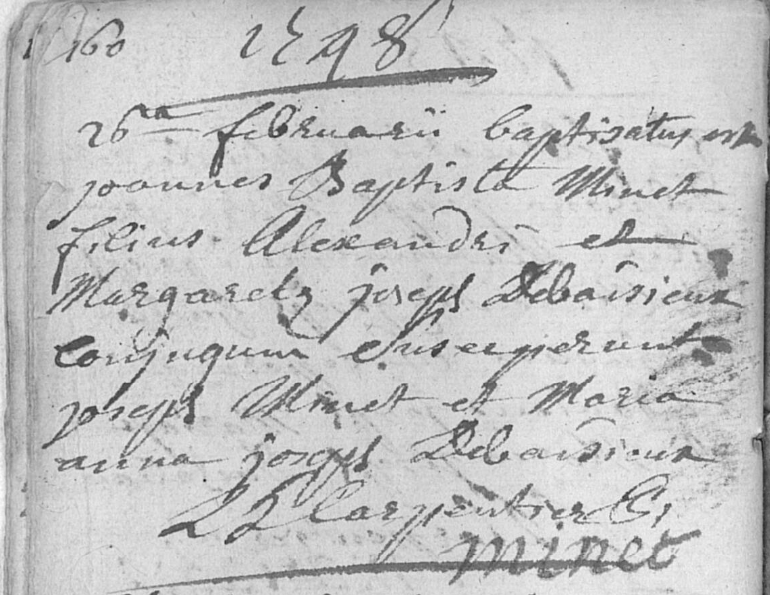 160 1748
26ta februarii baptisatus est
joannes Baptista Minet
filius Alexandri et
Margaretz joseph Debaisieux
Conjugum Susceperunt
joseph Minet et Maria
anna joseph Debaisieux
Carpentier
minet